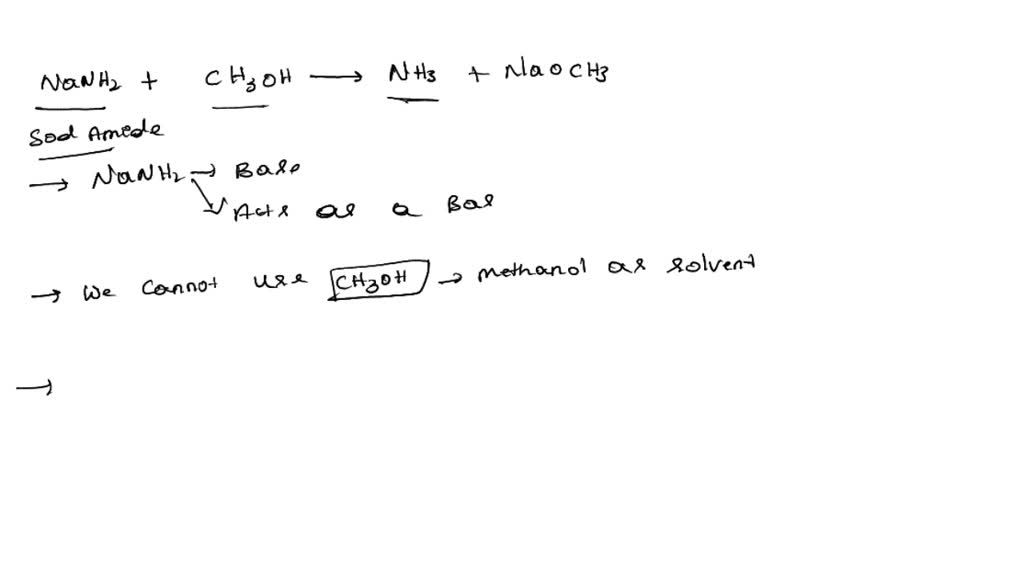 NaNH2 + CH3OH → NH3 + NaOCH3
Sod Amede
→ NaNH2 → Base
Acts as a Bas
→ We cannot use CH3OH → methanol as solvent
→